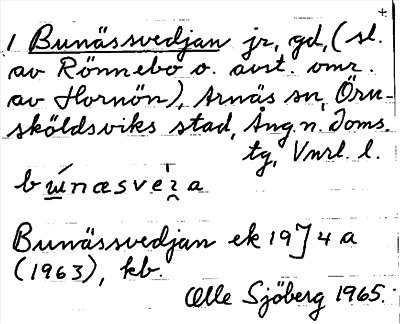 1 Bunässvedjan jr, gd, (sl.
av Rönnebo o. avst. omr.
av Hornön), Arnäs sn, Örn-
sköldsviks stad, Ång.n. doms.
tg, Vnrl. l.
Bunässvedjan ek 19J4a
(1963), kb.
Olle Sjöberg 1965.